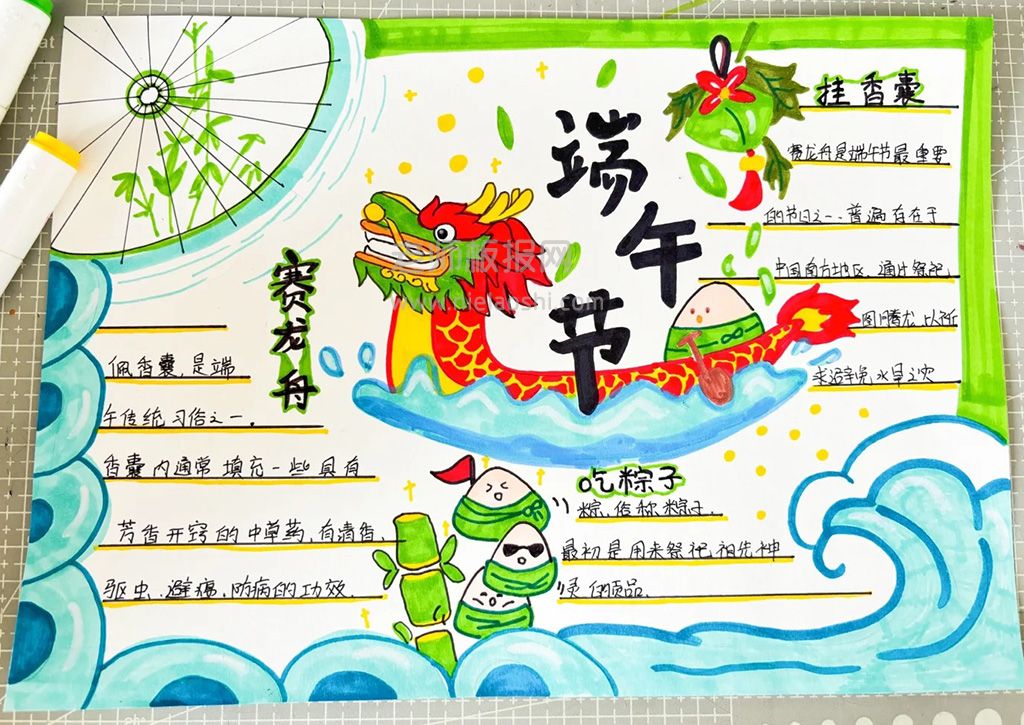 端午节
挂香囊
赛龙舟是端午节最重要
的节日之一、普遍存在于
中国南方地区,通过祭祀
图腾龙,以祈
求避免水旱之灾
赛龙舟
佩香囊,是端
午传统习俗之一。
香囊内通常填充一些具有
芳香开窍的中草药,有清香、
驱虫、避瘟、防病的功效.
吃粽子
粽,俗称粽子.
最初是用来祭祀祖先神
灵的贡品.
版报网